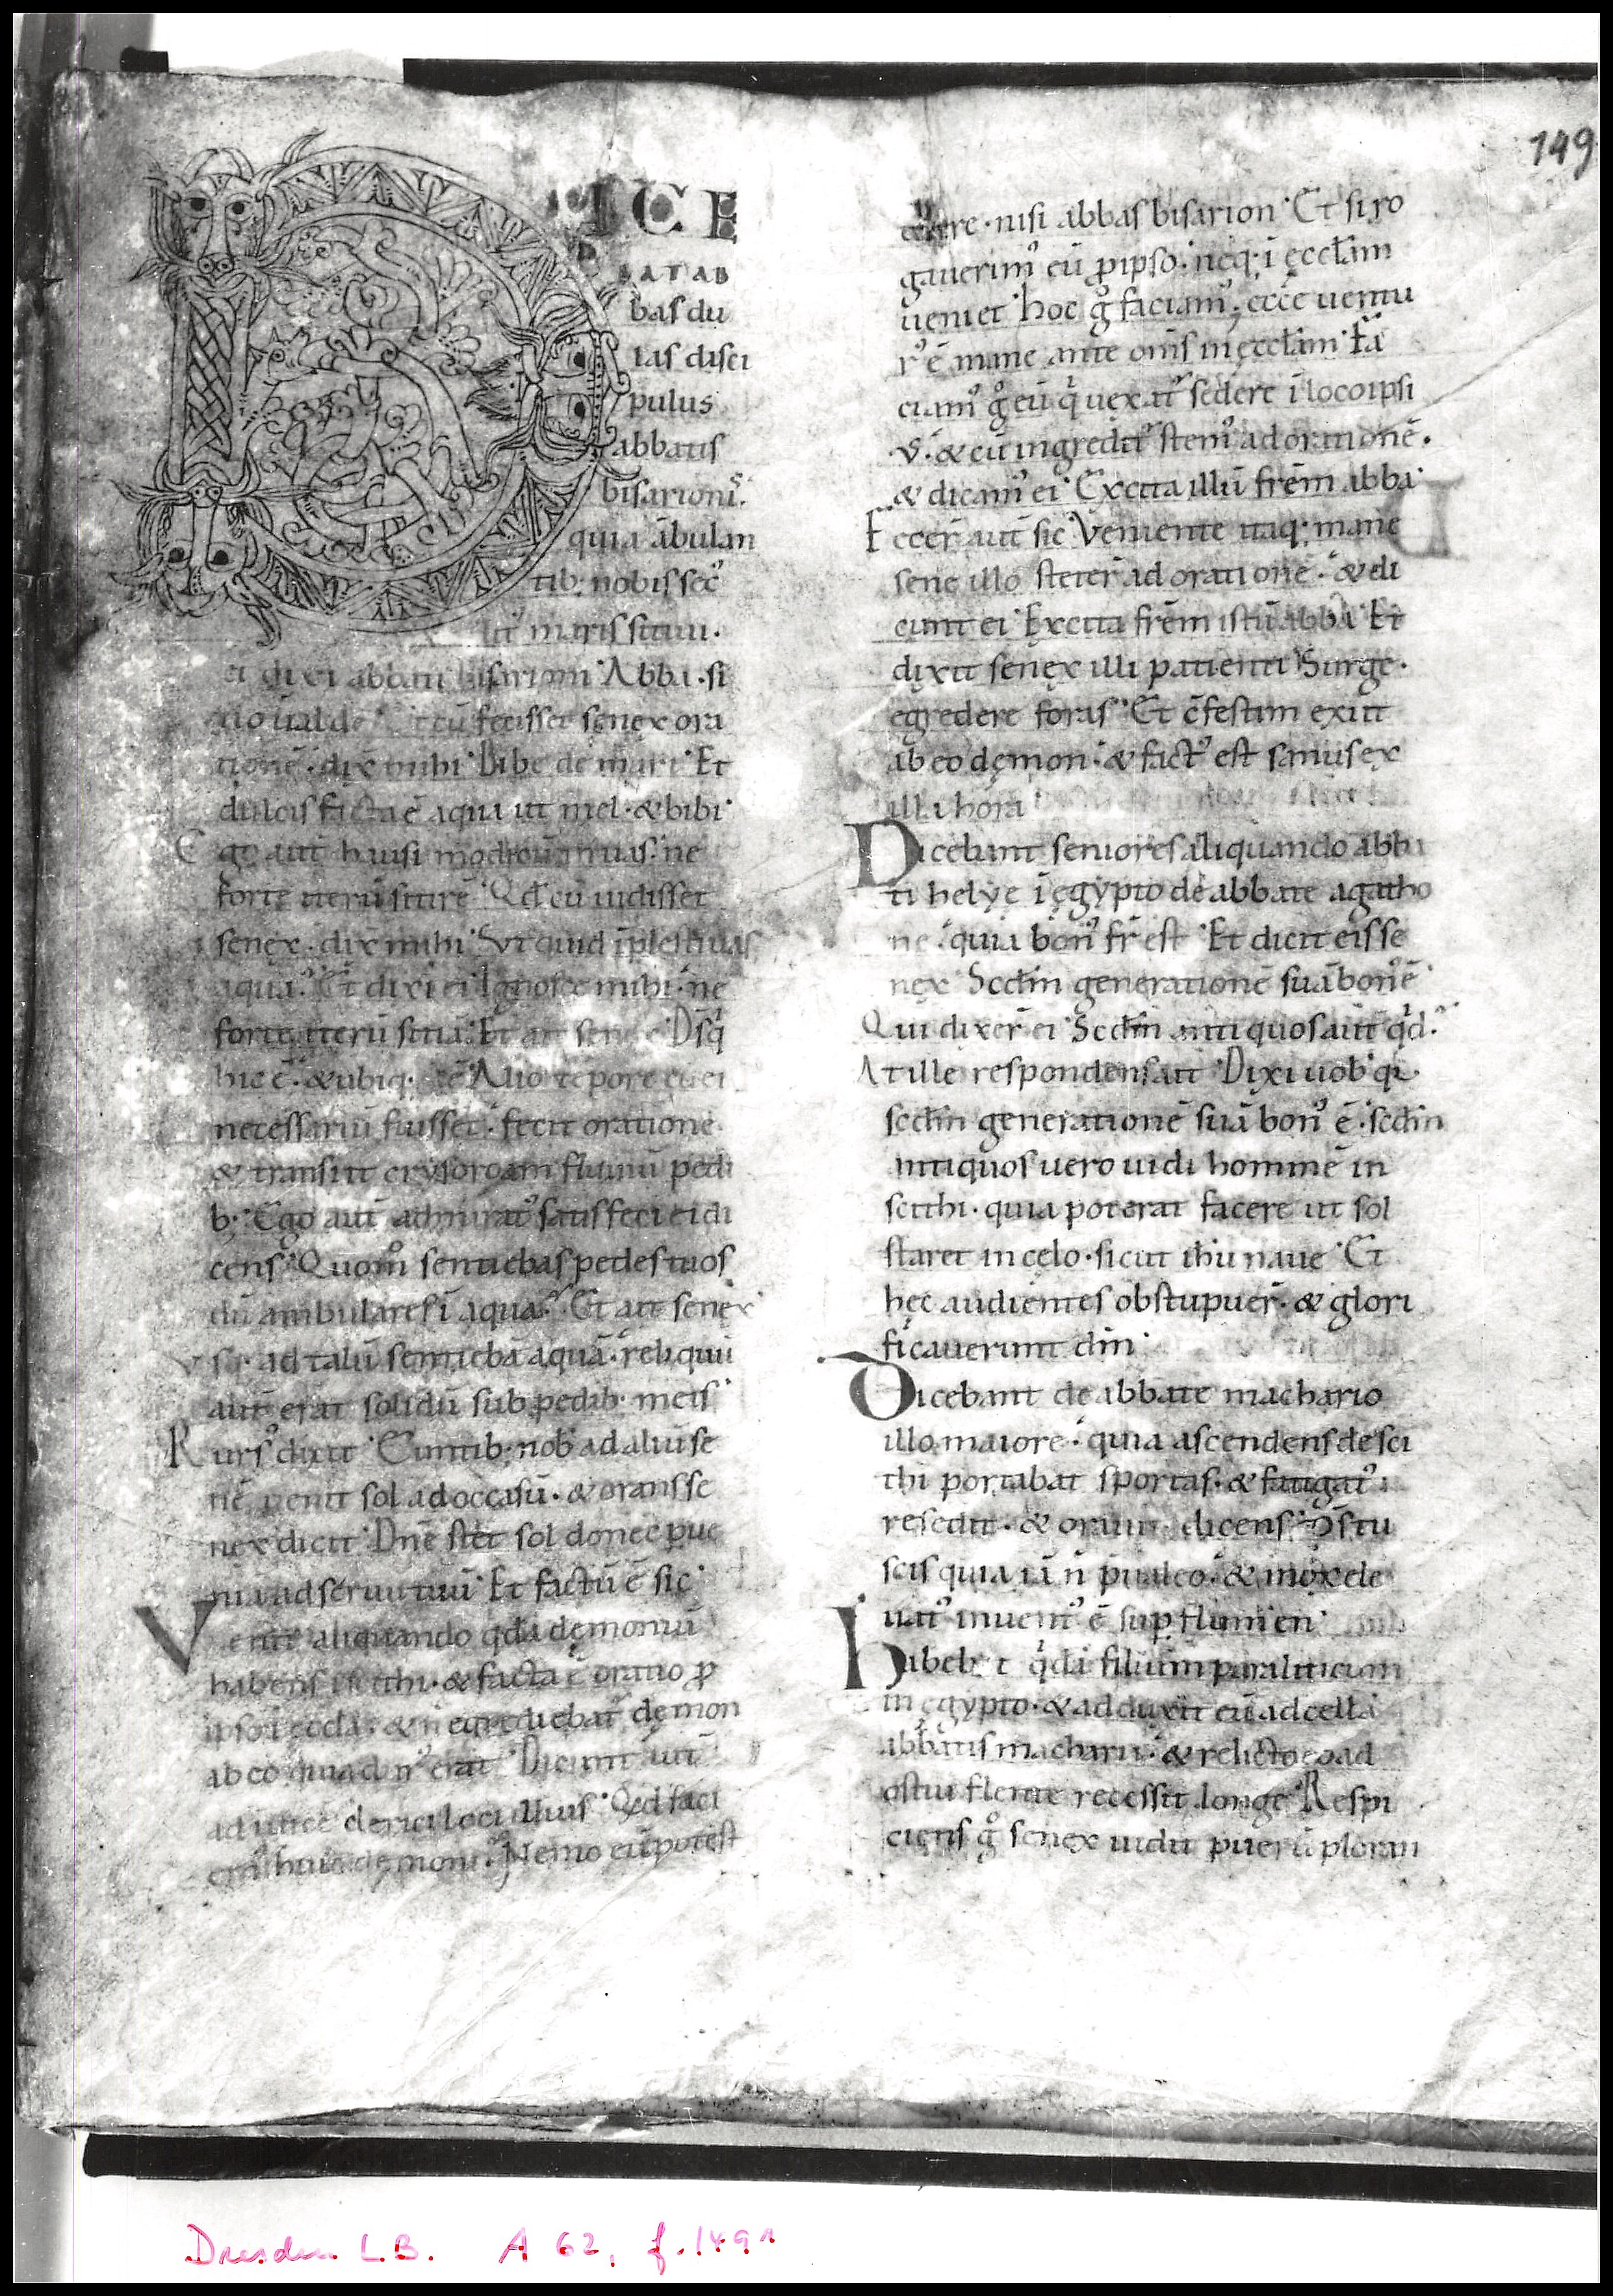 149
DICE
BATAB
bas du
las disci
pulus
abbatis
bisarioniˢ.
quia ābulan
tib; nobis sec᷒
maris sitiui.
ei dixi abbati bisarioni Abba. si
tio ualde cū fecisset senex ora
tionē. dix mihi Bibe de mari Et
dulcis facta ē aqua ut mel. & bibi
Ego aut hausi modicū in uas. ne
forte iterū sitirē Qd cū uidisset
senex. dix mihi Vt quid īplesti uas
aqua. Et dixi ei Ignosce mihi. ne
forte iterū sitiā. Et ait senex Dꝰ q
hic ē. & ubiq; ē Alio tēpore cū ei
necessariū fuisset. fecit orationē
& transiit crysoroam fluuiū pedi
b; Ego aut admirat᷒ satisfeci ei di
cens Quom̊ sentiebas pedes tuos
dū ambulares ī aqua. Et ait senex
Vsq; ad talū sentiebā aquā. reliquū
aut erat solidū sub pedib; meis
Rurs᷒ dixit Euntib; nob ad aliū se
nē, uenit sol ad occasū. & orans se
nex dicit Dnē stet sol donec pue
nia ad seruū tuū Et factū ē sic
Venit aliquando qdā demoniū
habens ī scithi. & facta ē oratio ꝓ
ipso ī eccla. & n egrediebat᷒ demon
ab eo quia dur᷒ erat Dicunt aut
ad inuicē clerici loci illius Qd faci
em᷒ huic demoni. Nemo eū potest
eicere. nisi abbas bisarion Et si ro
gauerim᷒ eū ꝓ ipso. neq; ī ecclam
ueniet hoc g̊ faciam᷒. ecce uentu
r᷒ ē mane ante omīs in ecclam Fa
ciam᷒ g̊ eū q̇ uexat᷒ sedere ī loco ipsi
v᷒. & cū ingredit᷒ stem᷒ ad orationē.
& dicam᷒ ei Excita illū frēm abba
Fecer aut sic Veniente itaq; mane
sene illo steter ad orationē. & di
cunt ei Excita frēm istū abba Et
dixit senex illi patienti Surge.
egredere foras Et cfestim exiit
ab eo demon. & fact᷒ est sanus ex
illa hora
Dicebant seniores aliquando abba
ti helye ī egypto de abbate agatho
ne. quia bon᷒ fr est Et dicit eis se
nex Scdm generationē suā bon᷒ ē
Qui dixer ei Scdm antiquos aut qd.
At ille respondens ait Dixi uob q̇.
scdm generationē suā bon᷒ ē. scdm
antiquos uero uidi hominē in
scithi. quia poterat facere ut sol
staret in celo. sicut ihu naue Et
hęc audientes obstupuer. & glori
ficauerunt dm
Dicebant de abbate machario
illo maiore. quia ascendens de sci
thi portabat sportas. & fatigat᷒
resedit. & orauit dicens Ds tu
scis quia iā n ṗualeo. & mox ele
uat᷒ inuent᷒ ē suꝑ flumen
Habebat qdā filium paraliticum
in egypto. & adduxit eū ad cellā
abbatis macharii. & relicto eo ad
ostiū flente recessit longe Respi
ciens g̊ senex uidit puerū ploran
Dresden L.B. A 62, f. 149ʳ